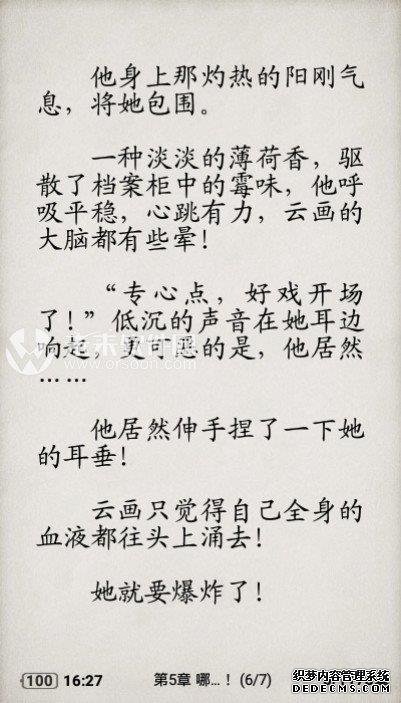 他身上那灼热的阳刚气
息，将她包围。
一种淡淡的薄荷香，驱
散了档案柜中的霉味，他呼
吸平稳，心跳有力，云画的
大脑都有些晕！
“专心点，好戏开场
了！”低沉的声音在她耳边
响起，更可恶的是，他居然
……
他居然伸手捏了一下她
的耳垂！
云画只觉得自己全身的
血液都往头上涌去！
她就要爆炸了！
100 16:27 第5章 哪...！ (6/7)
织梦内容管理系统
DEDECMS.COM